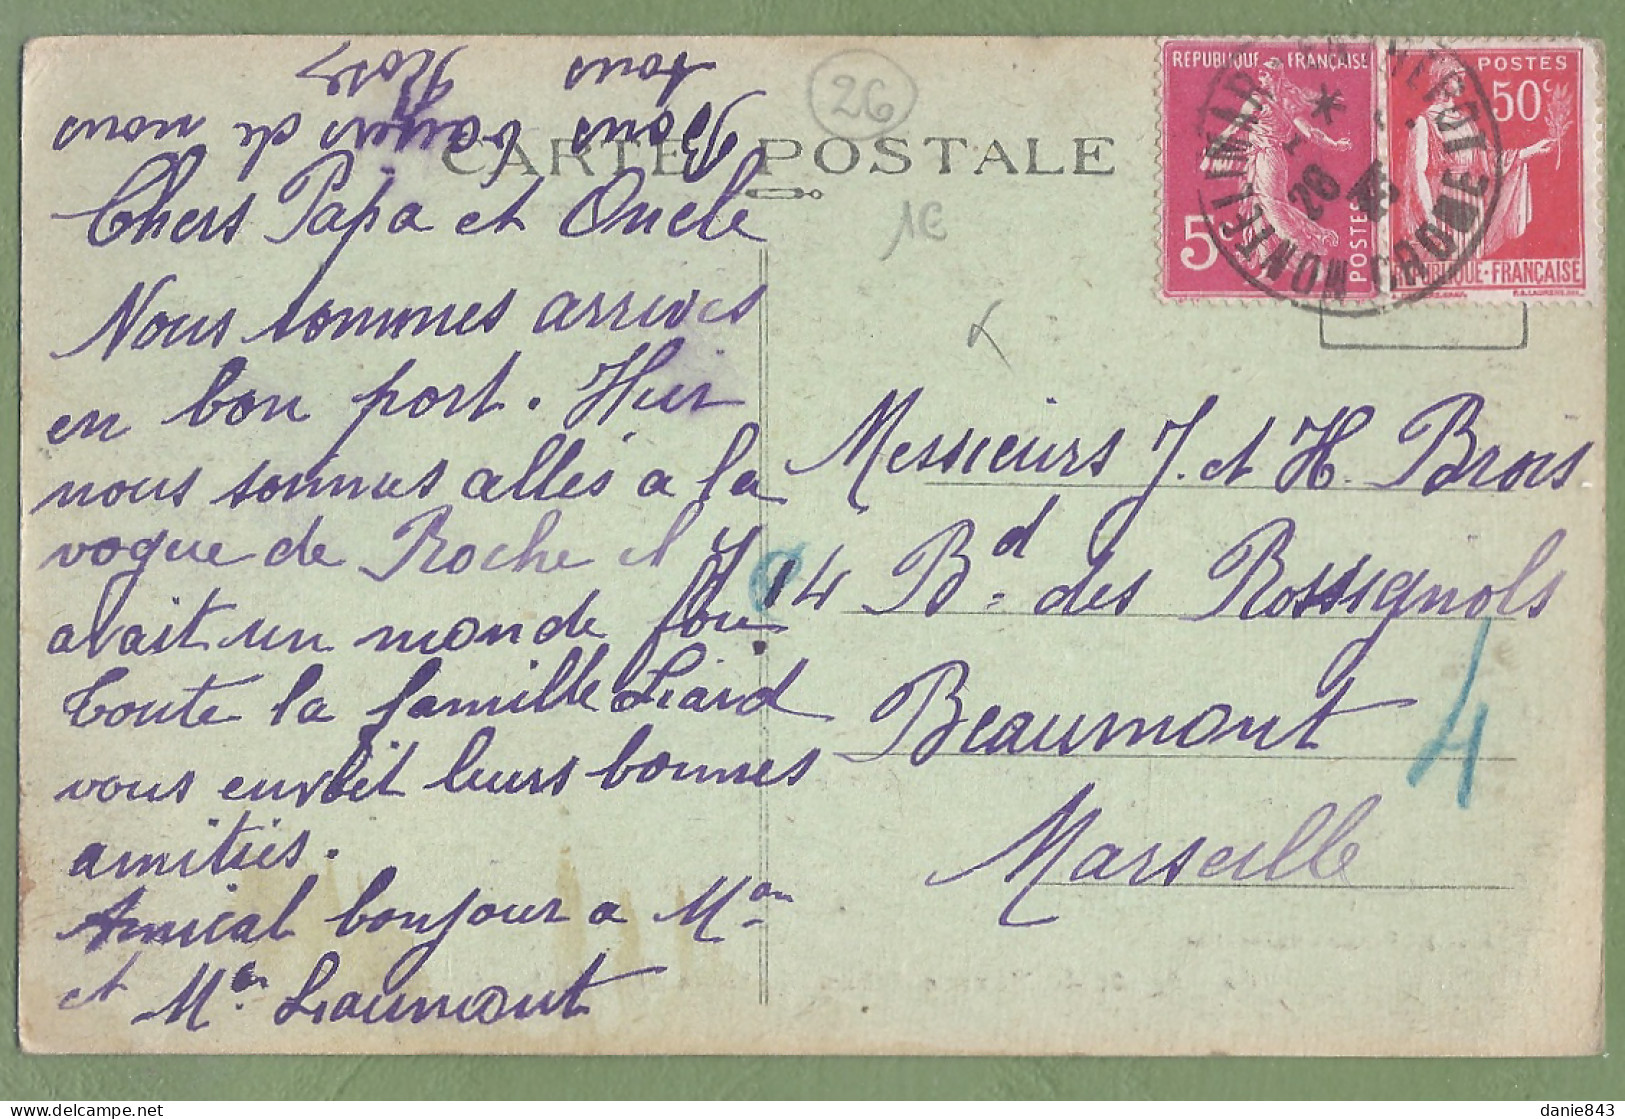 CARTE POSTALE
26
1€
Chers Papa et Oncle
Nous sommes arrivés
en bon port. Hier
nous sommes allés a la
vogue de Roche et Y
avait un monde fou
toute la famille Liard
vous envoit leurs bonnes
amitiés.
Amical bonjour a M
et M Liaumont
Bons baisers de nous
tous
REPUBLIQUE FRANÇAISE
5c
POSTES
POSTES
50c
REPUBLIQUE-FRANÇAISE
MONTELIMAR
DROME
Messieurs J. et H. Brois
14 Bd des Rossignols
Beaumont
Marseille
4
danie843